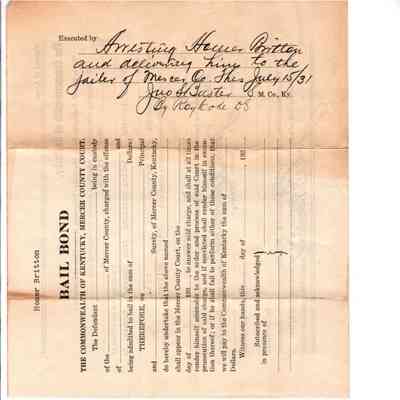 Executed by Arresting Homer Britton
and delivering him to the
jailer of Mercer Co. This July 15/31
Jno
M. Co. Ky.
By
Homer Britton
BAIL BOND
THE COMMONWEALTH OF KENTUCKY, MERCER COUNTY COURT.
The Defendant being in custody
of the of Mercer County, charged with the offense
of and
being admitted to bail in the sum of Dollars:
THEREFORE, we Principal
and Surety, of Mercer County, Kentucky,
do hereby undertake that the above named
shall appear in the Mercer County Court, on the
day of 193 to answer said charge, and shall at all times
render himself amenable to the order and process of said Court in the
prosecution of said charge, and if convicted shall render himself in execu-
tion thereof; or if he shall fail to perform either of these conditions, that
we will pay to the Commonwealth of Kentucky the sum of
Dollars.
Witness our hands, this day of , 193
Subscribed and acknowledged
in presence of